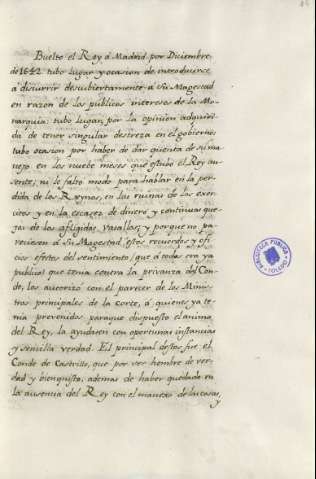 Buelto el Rey á Madrid por Diciembre
de 1642 tubo lugar y ocasion de introducirse
á discurrir descubiertamente á Su Magestad
en razon de los publicos intereses de la Mo-
narquia: tubo lugar, por la opinion adquiri-
da de tener singular destreza en el gobierno;
tubo ocasion por haber de dar quenta de su ma-
nejo en los nuebe meses que estubo el Rey au-
sente; ni le faltó modo para hablar en la per-
dida de los Reynos, en las ruinas de los exer-
citos y en la escasez de dinero y continuas que-
jas de los afligidos vasallos; y porque no pa-
reciesen á Su Magestad estos recuerdos y ofi-
cios efectos del sentimiento, que á todos era ya
publico que tenia contra la privanza del Con-
de, los autorizó con el parecer de los Minis-
tros principales de la corte, á quienes ya te-
nia prevenidos para que dispuesto el animo
del Rey, la ayudasen con oportunas instancias
y sencilla verdad. El principal destos fue el
Conde de Castrillo, que por ser hombre de ver-
dad y bienquisto, ademas de haber quedado en
la ausencia del Rey con el manejo de las cosas, y
BIBLIOTECA PUBLICA
TOLEDO